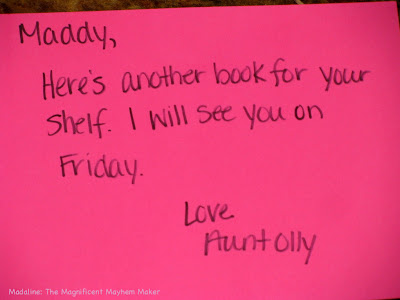 Maddy,
Here's another book for your
shelf. I will see you on
Friday.
Love
Aunt Olly
Madaline: The Magnificent Mayhem Maker